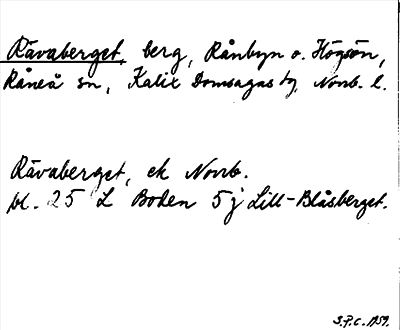 Rävaberget, berg, Rånbyn o. Högsön,
Råneå sn, Kalix Domsagas tg, Norrb. l.
Rävaberget, ek Norrb.
bl. 25 L Boden 5 j Lill-Blåsberget.
S.P.C. 1959.